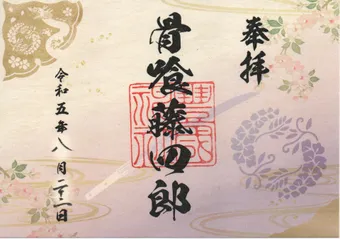 奉拝
骨喰藤四郎
令和五年八月
日